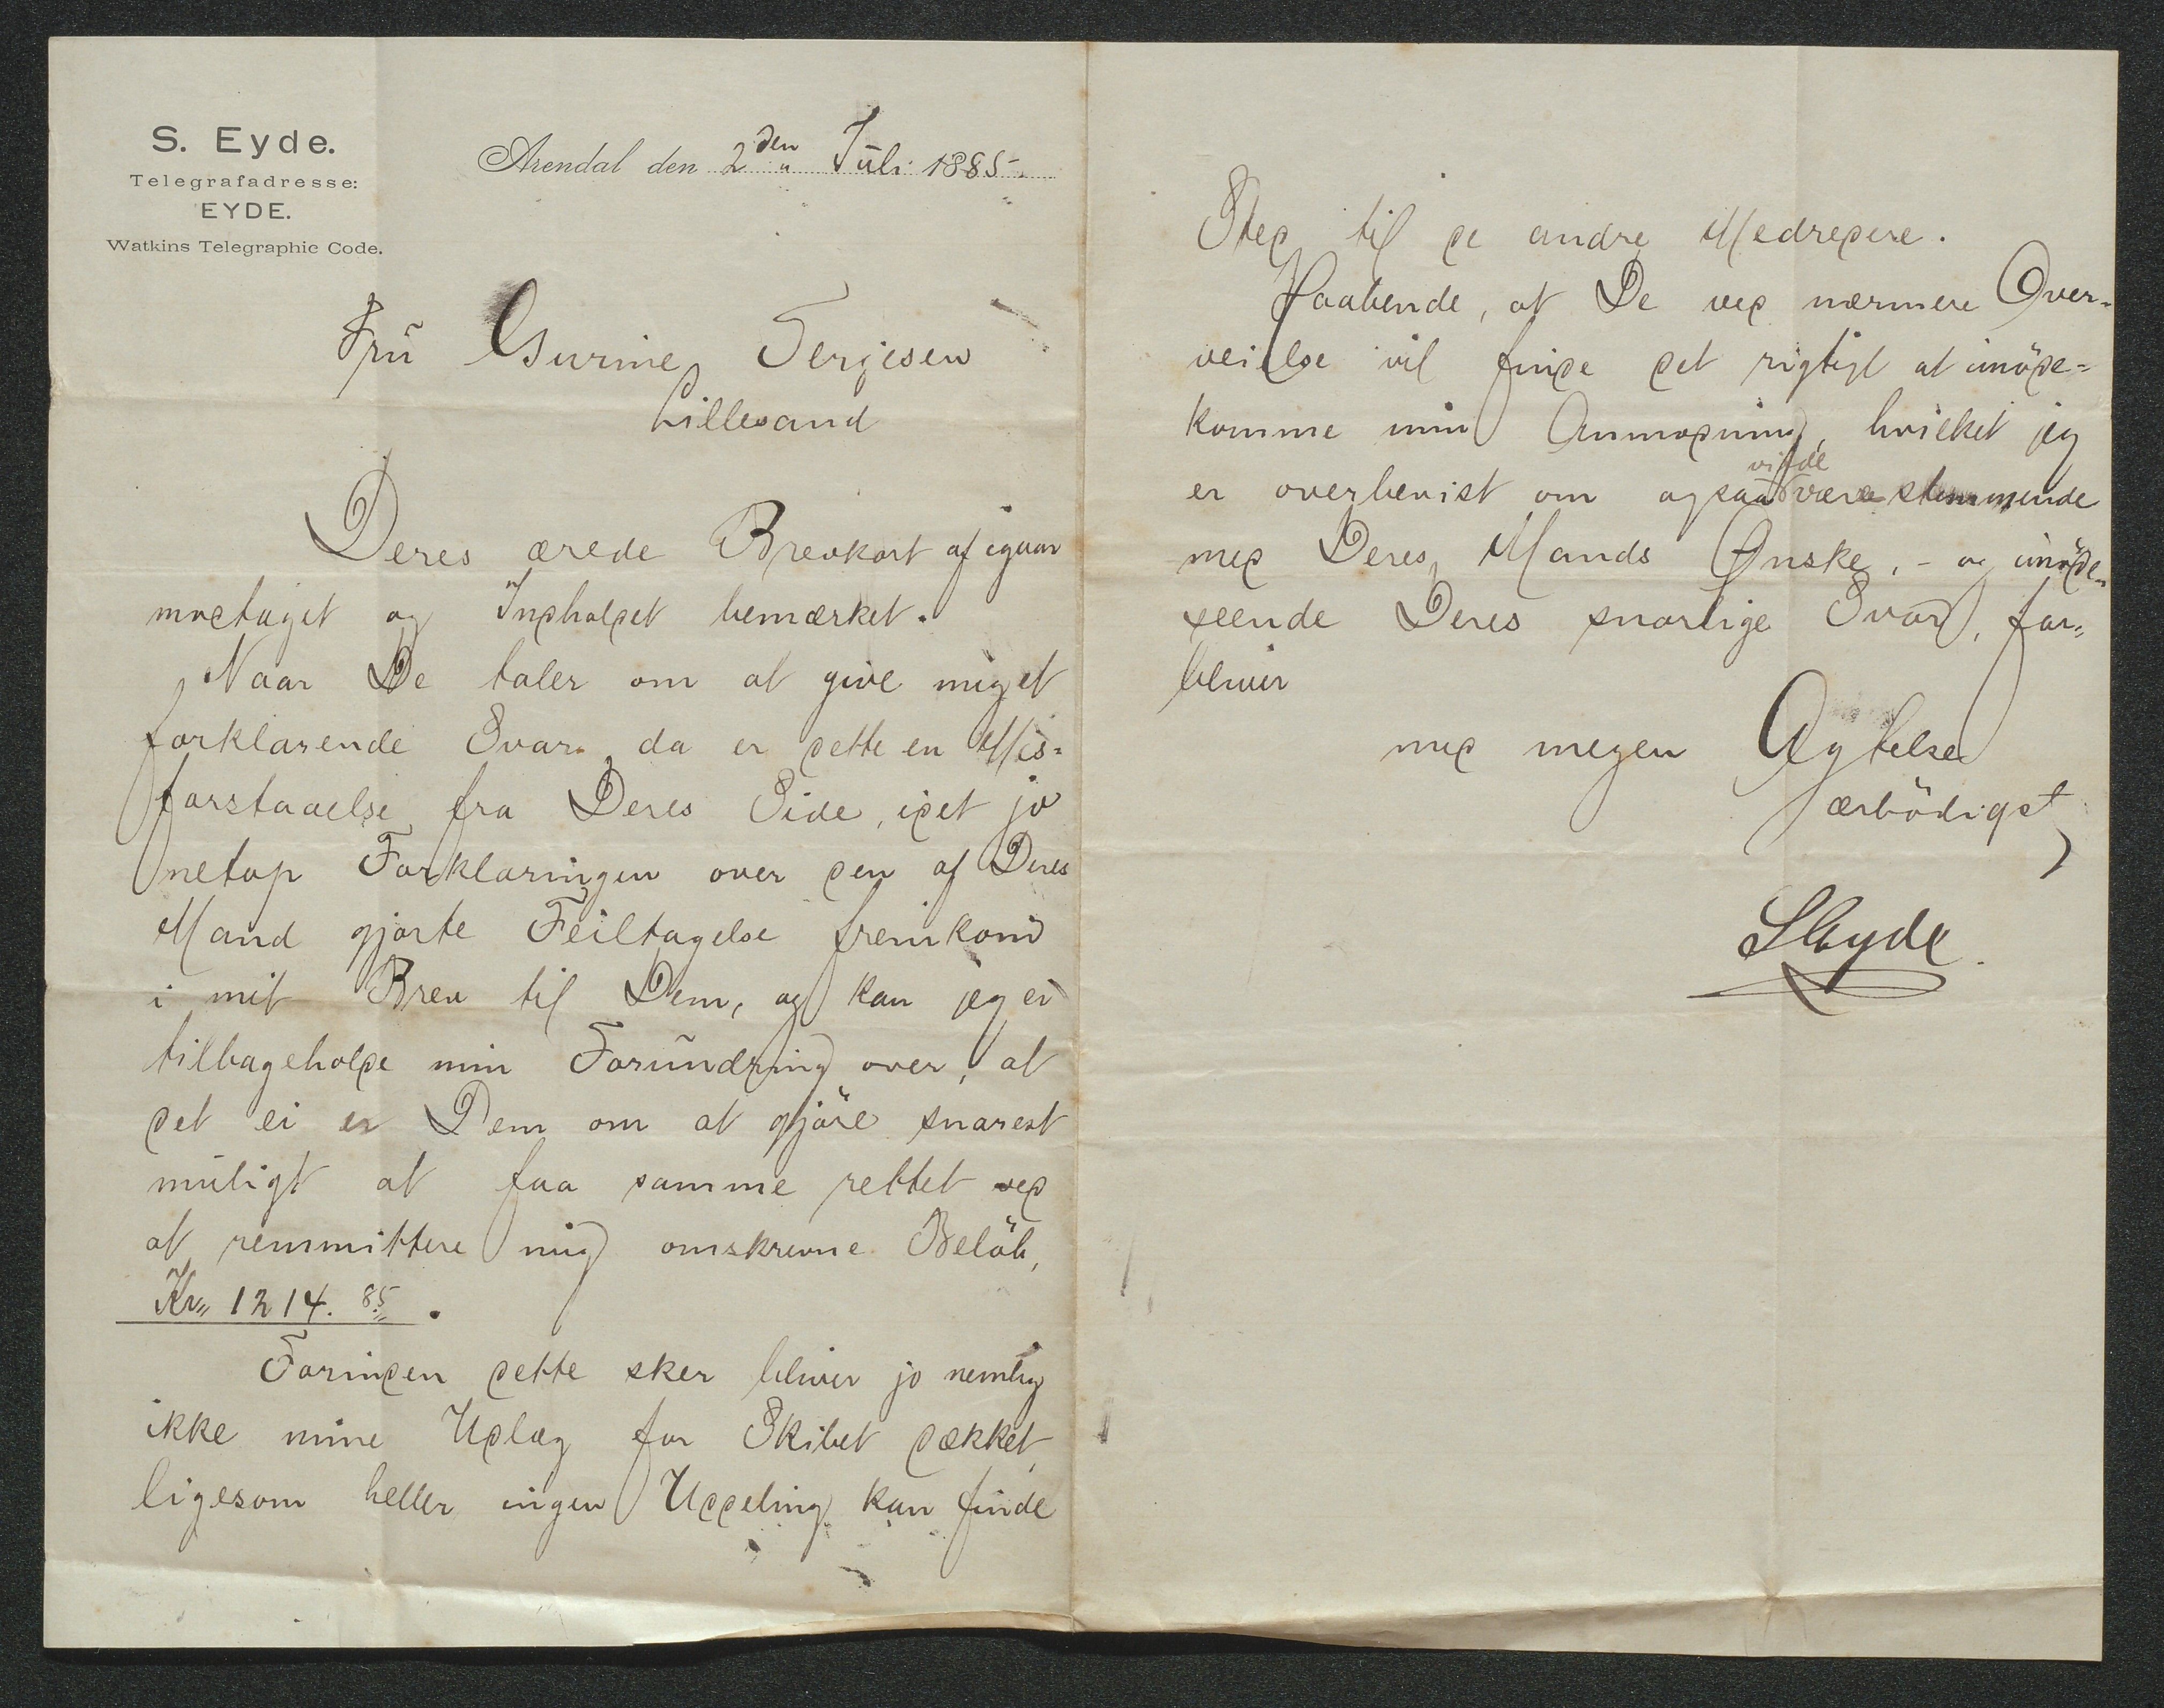 S. Eyde.
Telegrafadresse:
EYDE.
Watkins Telegraphic Code.
Arendal den 2den Juli 1885.
Fru Gurine Terjesen
Lillesand
Deres ærede Brevkort af igaar
modtaget og Indholdet bemærket.
Naar De taler om at give mig et
forklarende Svar, da er dette en Mis=
forstaaelse fra Deres Side, idet jo
netop Forklaringen over den af Deres
Mand gjorte Feiltagelse fremkom
i mit Brev til Dem, og kan jeg ei
tilbageholde min Forundring over, at
det ei er Dem om at gjöre snarest
muligt at faa samme rettet ved
at remmittere mig omskrevne Belöb,
Kr„ 1214. 85.
Forinden dette sker bliver jo nemlig
ikke mine Udlæg for Skibet dækket,
ligesom heller ingen Uddeling kan finde
Sted til de andre Medredere.
Haabende, at De ved nærmere Over=
veielse vil finde det rigtigt at imöde=
komme min Anmodning, hvilket jeg
er overbevist om ogsaa vilde være stemmende
med Deres Mands Ønske, - og imöde=
seende Deres snarlige Svar, for„
bliver
med megen Agtelse
ærbödigst
SEyde.